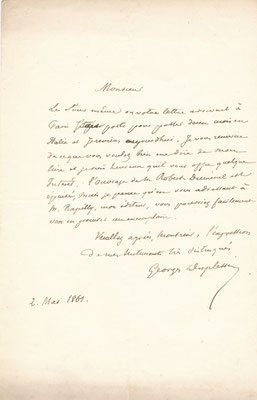 Monsieur
Le jour même où votre lettre arrivait à
Paris je partais pour passer deux mois en
Italie et je reviens aujourd'hui. Je vous remercie
de ce que vous voulez bien me dire de mon
livre et je suis heureux qu'il vous offre quelque
intérêt. L'ouvrage de M. Robert Dumesnil est
épuisé, mais je pense qu'en vous adressant à
M. Rapilly, mon éditeur, vous pourriez facilement
vous en procurer un exemplaire.
Veuillez agréer, Monsieur, l'expression
de mes sentiments très distingués
Georges Duplessis
2. Mai 1861.